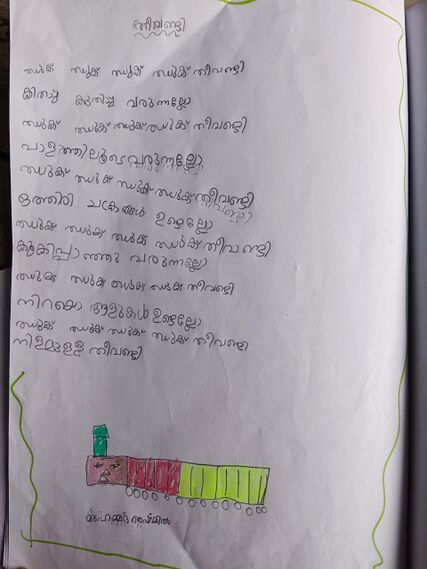 തീവണ്ടി
ഝുക് ഝുക് ഝുക് ഝുക് തീവണ്ടി
കിതച്ചു കുതിച്ചു വരുന്നല്ലോ
ഝുക് ഝുക് ഝുക് ഝുക് തീവണ്ടി
പാളത്തിലൂടെ വരുന്നല്ലോ
ഝുക് ഝുക് ഝുക് ഝുക് തീവണ്ടി
ഒത്തിരി ചക്രങ്ങൾ ഉണ്ടല്ലോ
ഝുക് ഝുക് ഝുക് ഝുക് തീവണ്ടി
കൂകിപ്പാഞ്ഞു വരുന്നല്ലോ
ഝുക് ഝുക് ഝുക് ഝുക് തീവണ്ടി
നിറയെ ആളുകൾ ഉണ്ടല്ലോ
ഝുക് ഝുക് ഝുക് ഝുക് തീവണ്ടി
നീളമുള്ള തീവണ്ടി